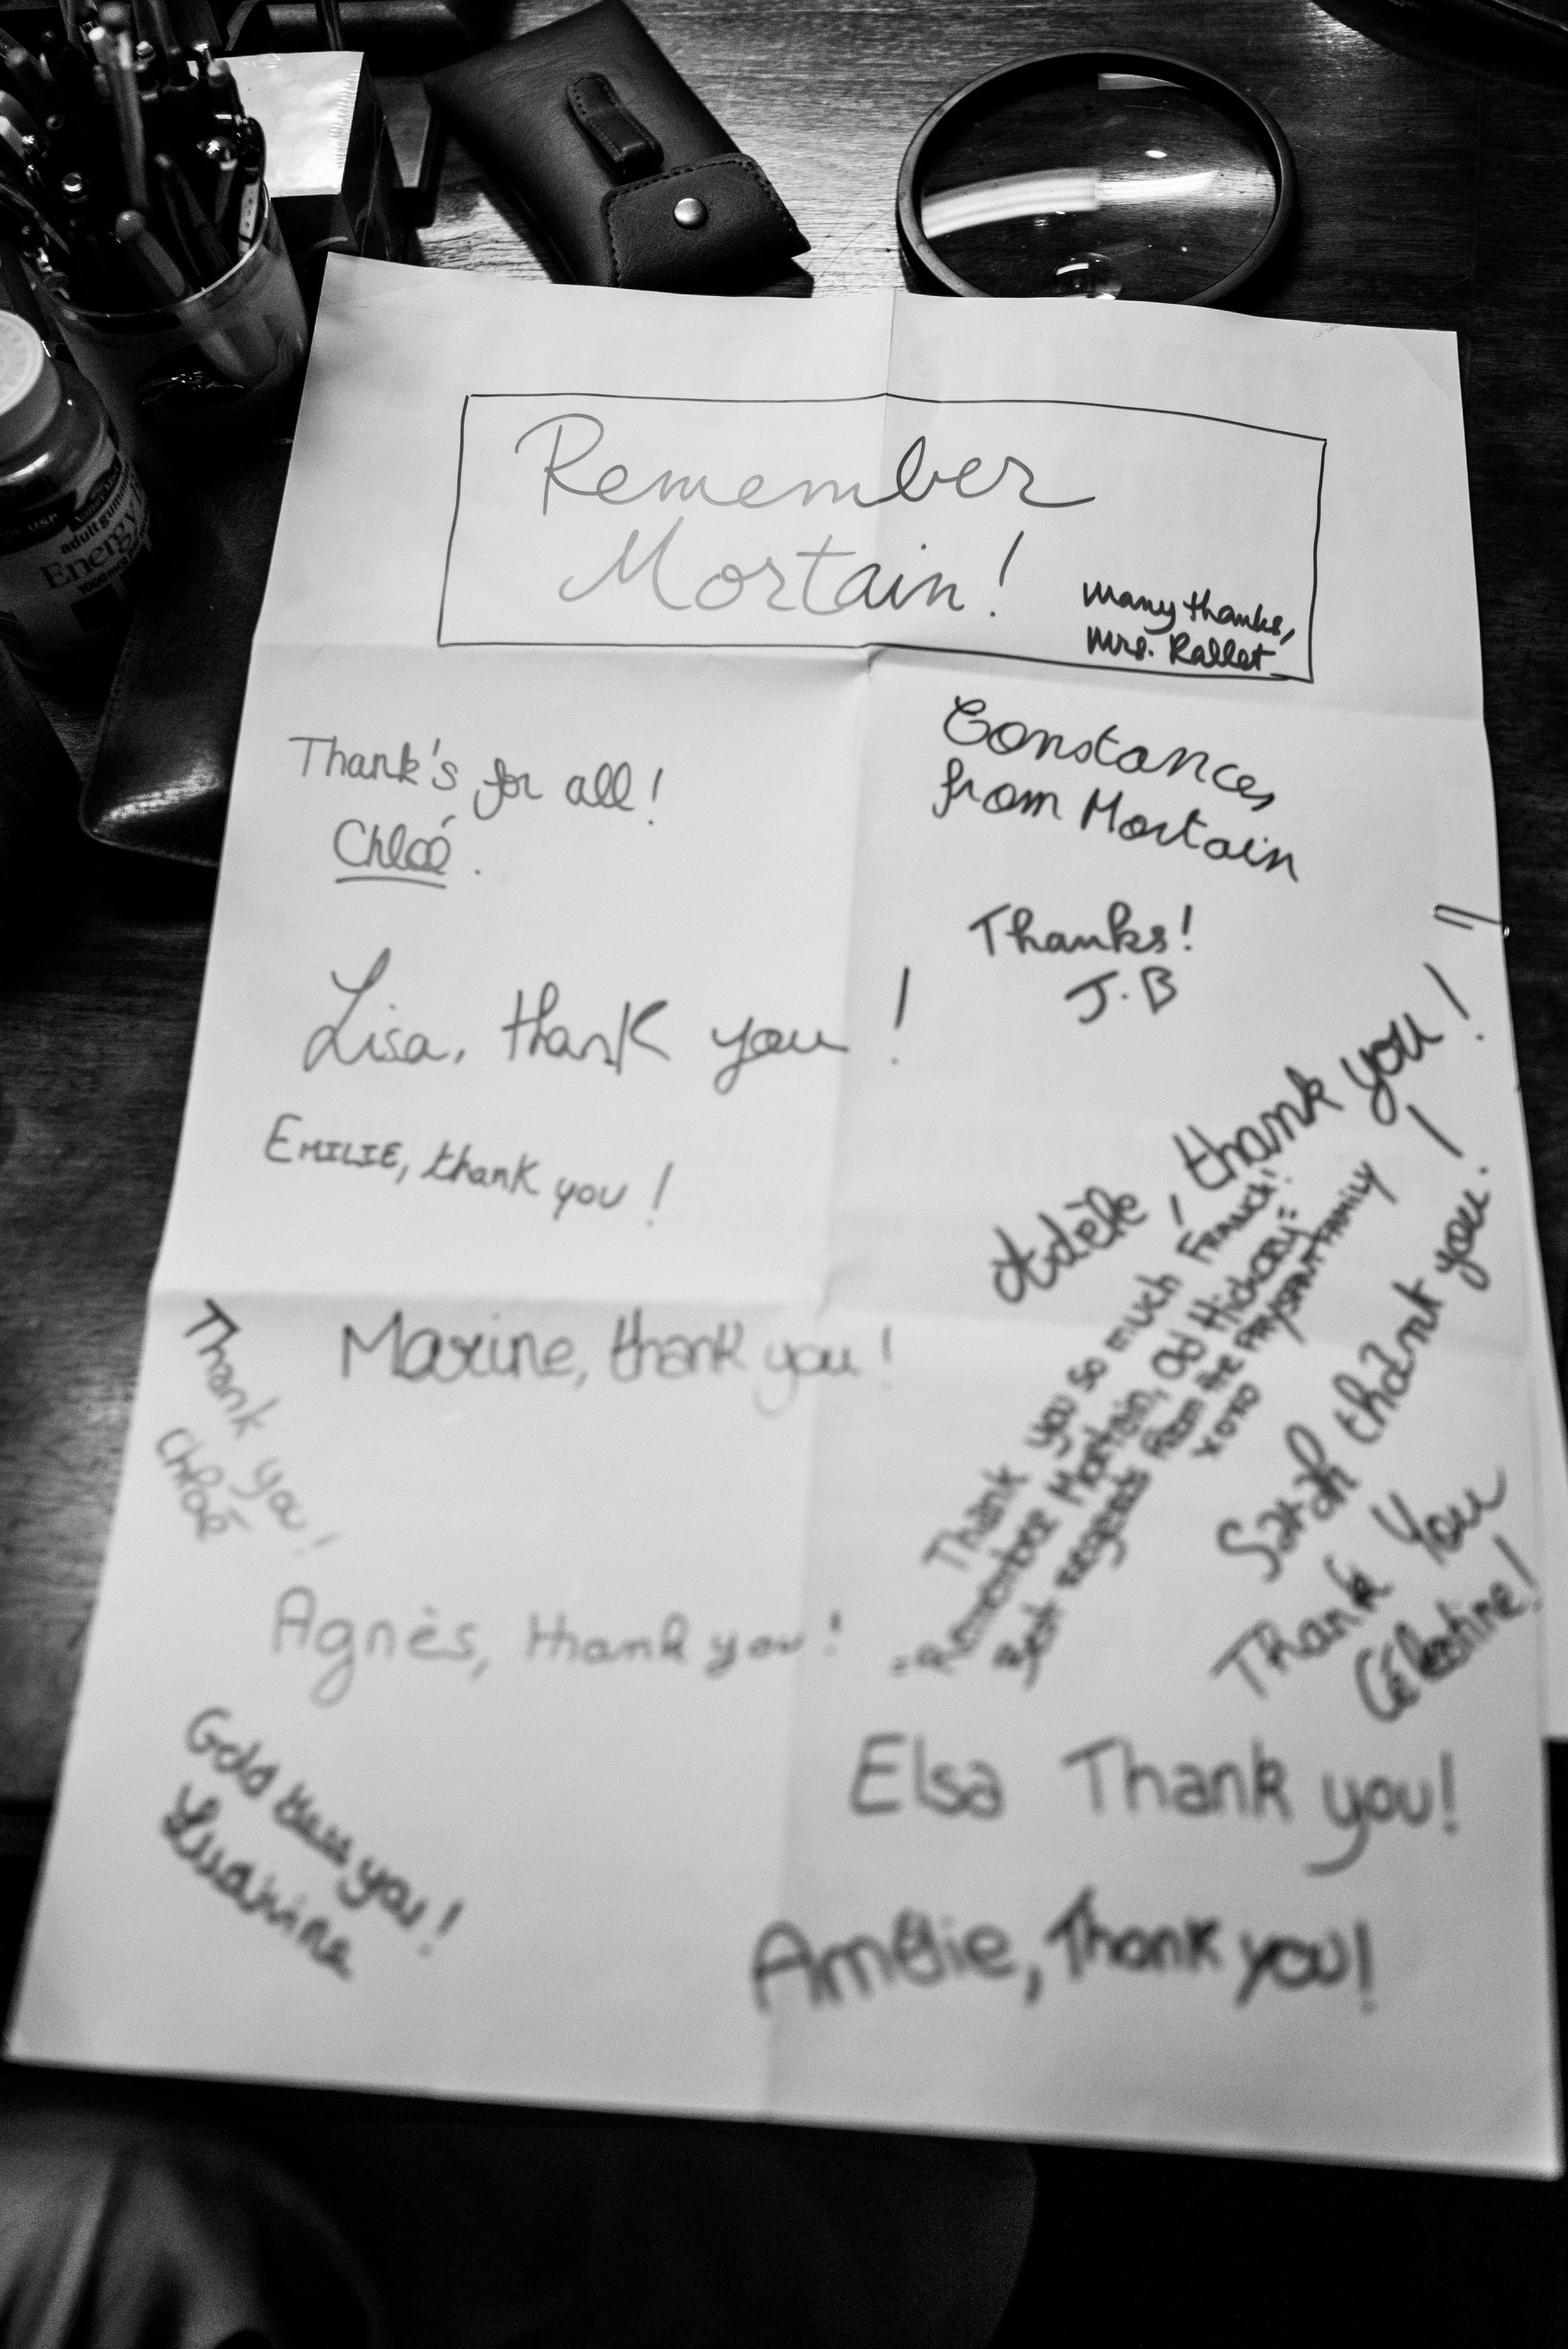 Remember
Mortain!
Many thanks,
Mrs. Rallet
Thank's for all!
Chloé.
Constance,
from Mortain
Thanks!
J.B
Lisa, thank you!
EMILIE, thank you!
Adèle, thank you!
Thank you so much FRANCK!
"Remember Mortain, Old Hickory"
Best regards from the FAMILY
XOXO
Sarah thank you!
Thank You
Célestine!
Maxine, thank you!
Thank you!
Chloé
Agnès, thank you!
God bless you!
Elsa Thank you!
Amélie, Thank you!
USP
adult gummies
Energy
1000 mcg